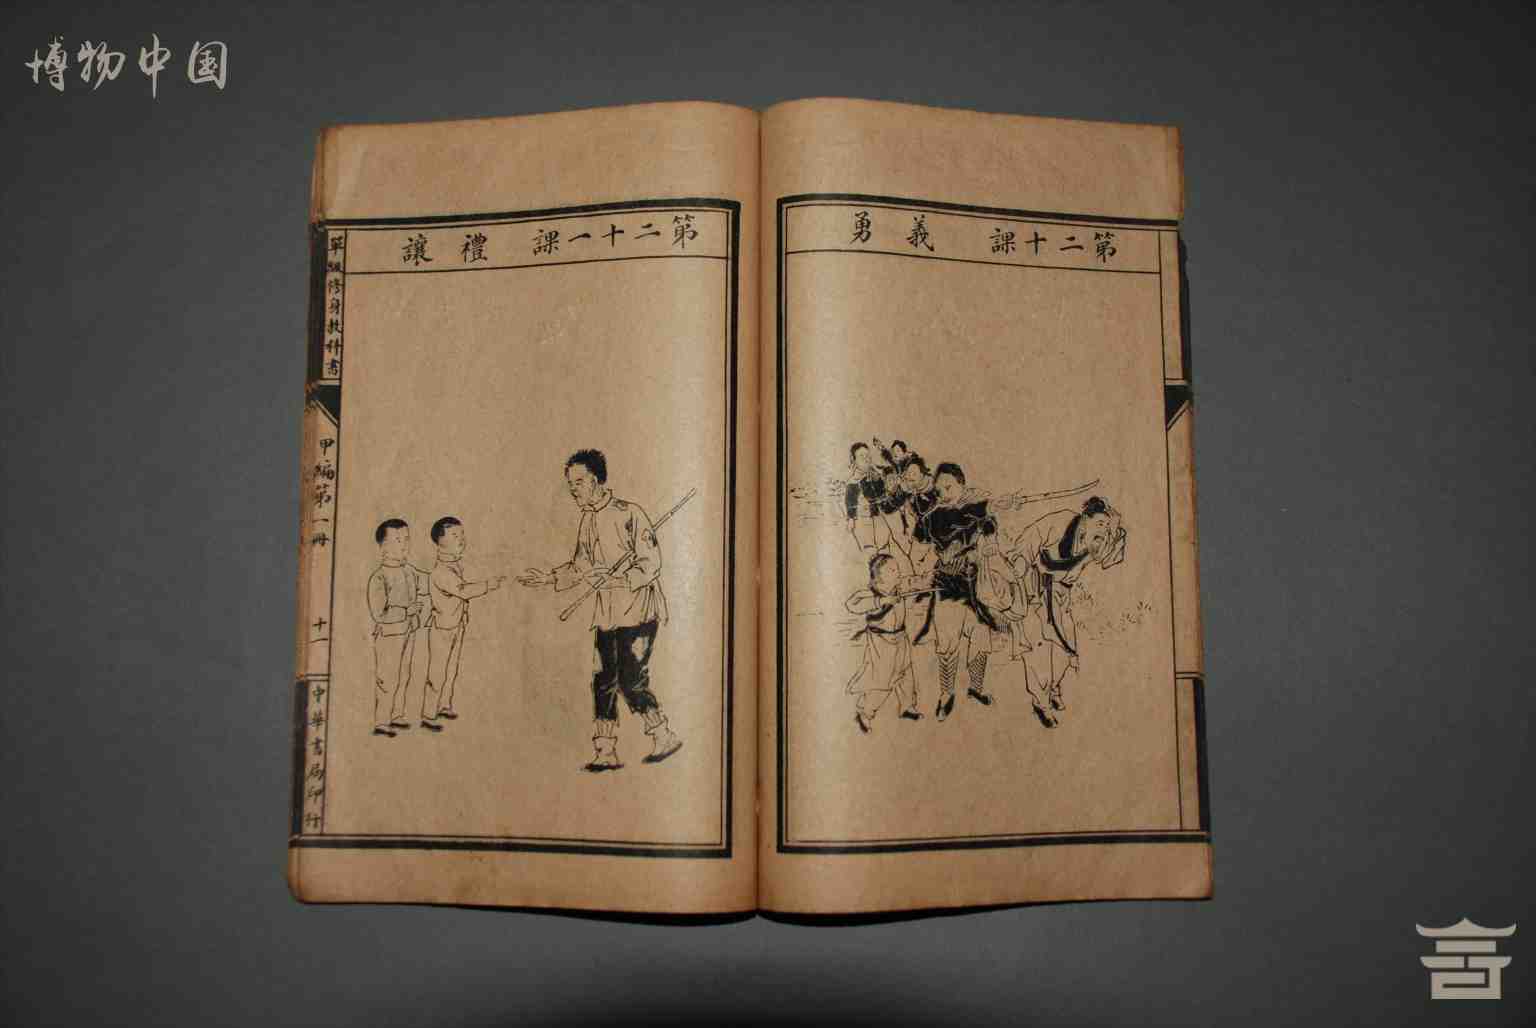 博物中国
第二十課 義勇
第二十一課 禮讓
單級修身教科書
甲編第一冊
十一
中華書局印行